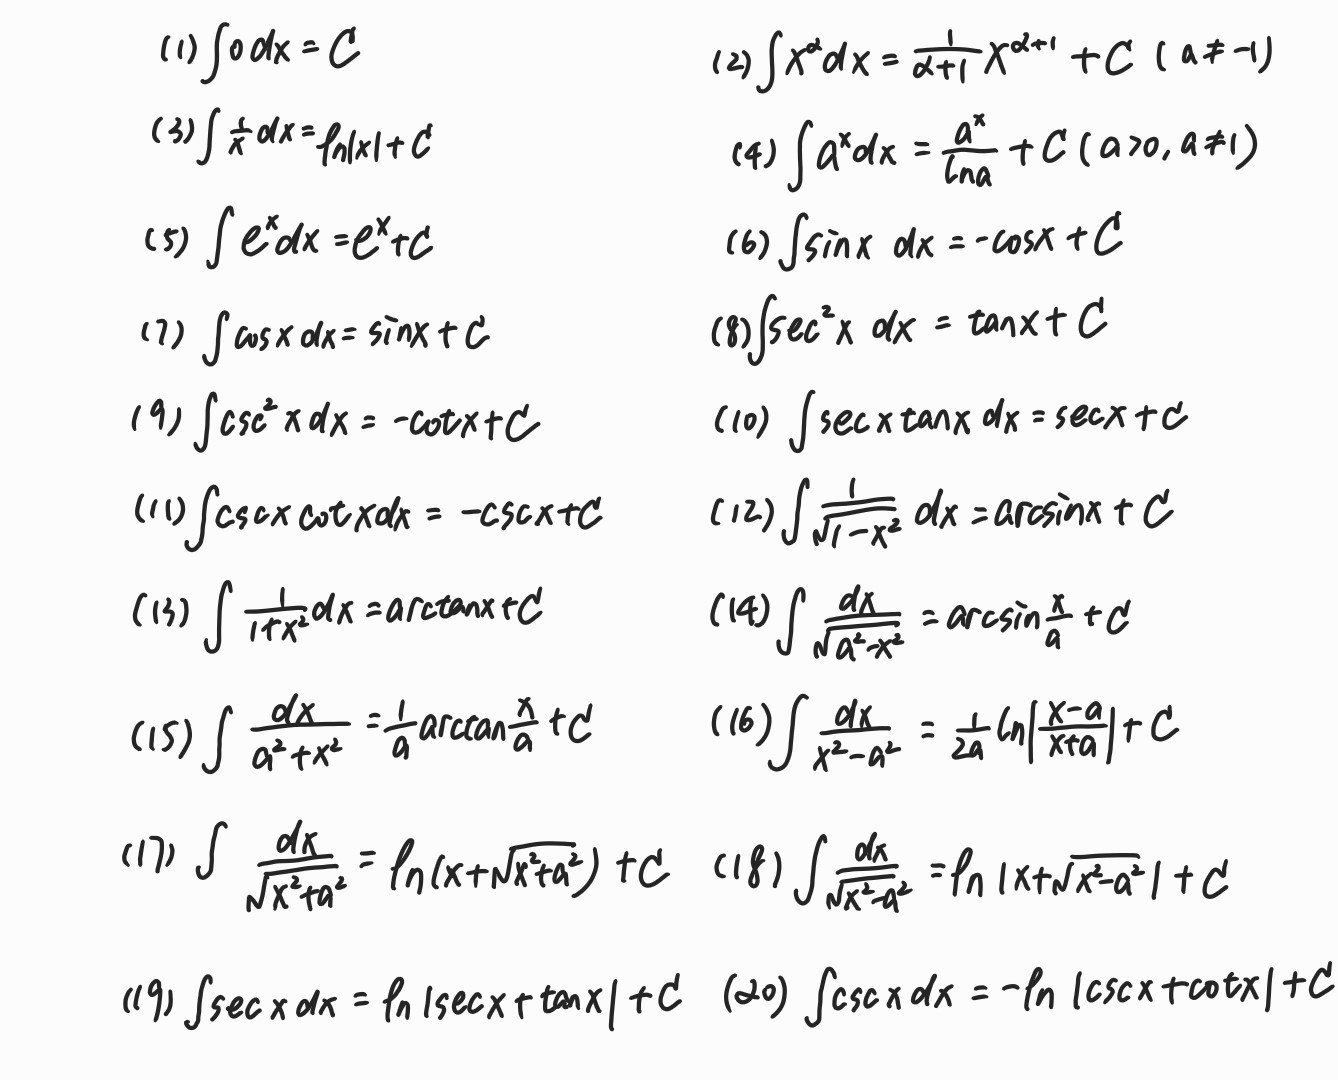 (1) ∫0 dx = C
(2) ∫x^α dx = 1/(α+1) x^(α+1) + C (a ≠ -1)
(3) ∫1/x dx = ln|x| + C
(4) ∫a^x dx = a^x/lna + C (a>0, a≠1)
(5) ∫e^x dx = e^x + C
(6) ∫sinx dx = -cosx + C
(7) ∫cosx dx = sinx + C
(8) ∫sec²x dx = tanx + C
(9) ∫csc²x dx = -cotx + C
(10) ∫secxtanx dx = secx + C
(11) ∫cscxcotxdx = -cscx + C
(12) ∫1/√(1-x²) dx = arcsinx + C
(13) ∫1/(1+x²) dx = arctanx + C
(14) ∫dx/√(a²-x²) = arcsin x/a + C
(15) ∫dx/(a²+x²) = 1/a arctan x/a + C
(16) ∫dx/(x²-a²) = 1/2a ln|(x-a)/(x+a)| + C
(17) ∫dx/√(x²+a²) = ln(x+√(x²+a²)) + C
(18) ∫dx/√(x²-a²) = ln|x+√(x²-a²)| + C
(19) ∫secxdx = ln|secx+tanx| + C
(20) ∫cscxdx = -ln|cscx+cotx| + C